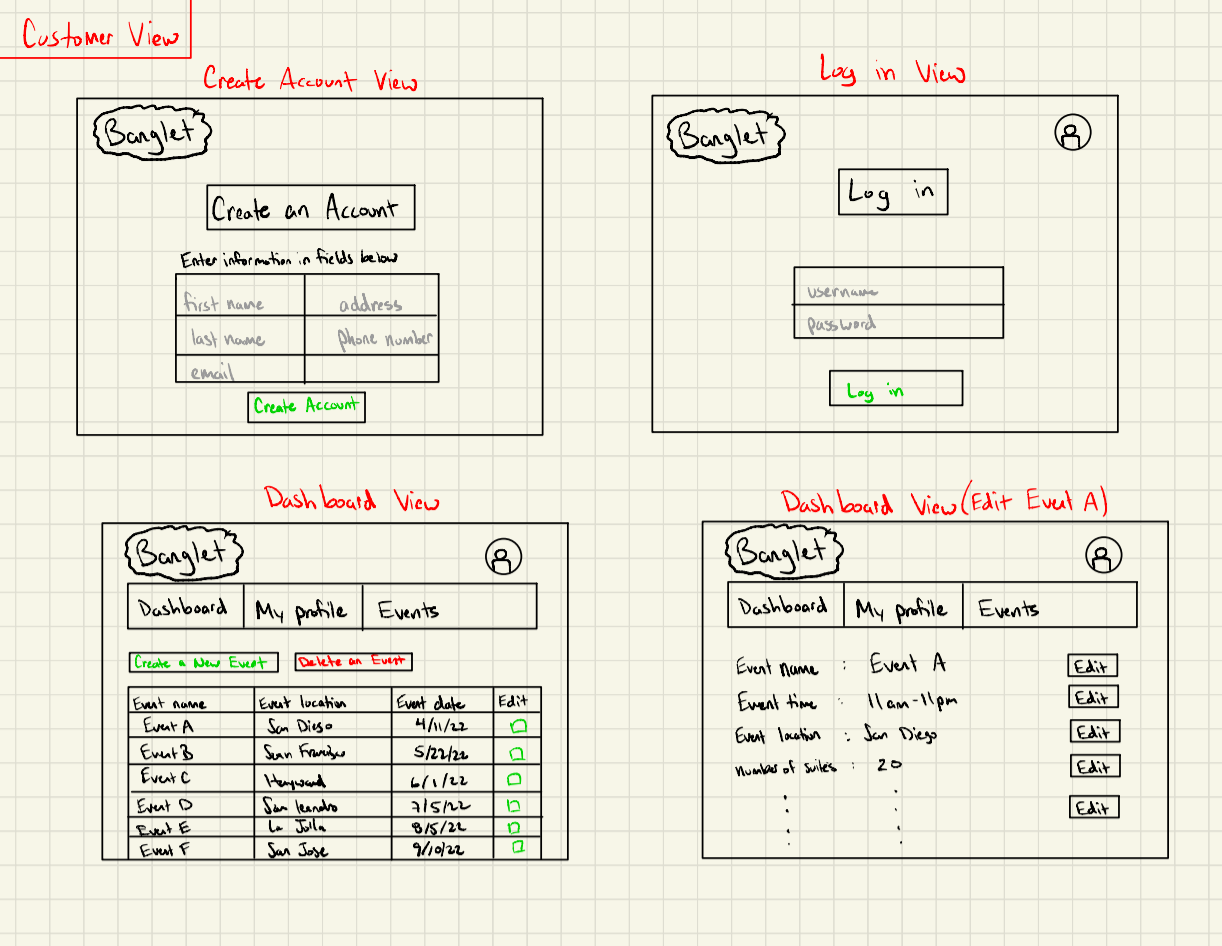 Customer View
Create Account View
Banglet
Create an Account
Enter information in fields below
first name address
last name phone number
email
Create Account
Log in View
Banglet
Log in
username
password
Log in
Dashboard View
Banglet
Dashboard My profile Events
Create a New Event Delete an Event
Event name Event location Event date Edit
Event A San Diego 4/11/22
Event B San Francisco 5/22/22
Event C Hayward 6/1/22
Event D San leandro 7/5/22
Event E La Jolla 8/5/22
Event F San Jose 9/10/22
Dashboard View (Edit Event A)
Banglet
Dashboard My profile Events
Event name : Event A Edit
Event time : 11am-11pm Edit
Event location : San Diego Edit
number of suites : 20 Edit
Edit